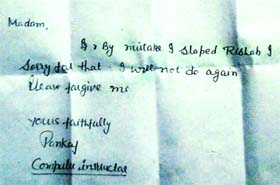 Madam,
By mistake I slaped Rishab I
sorry for that. I will not do again
Please forgive me
yours faithfully
Pankaj
Computer instructor